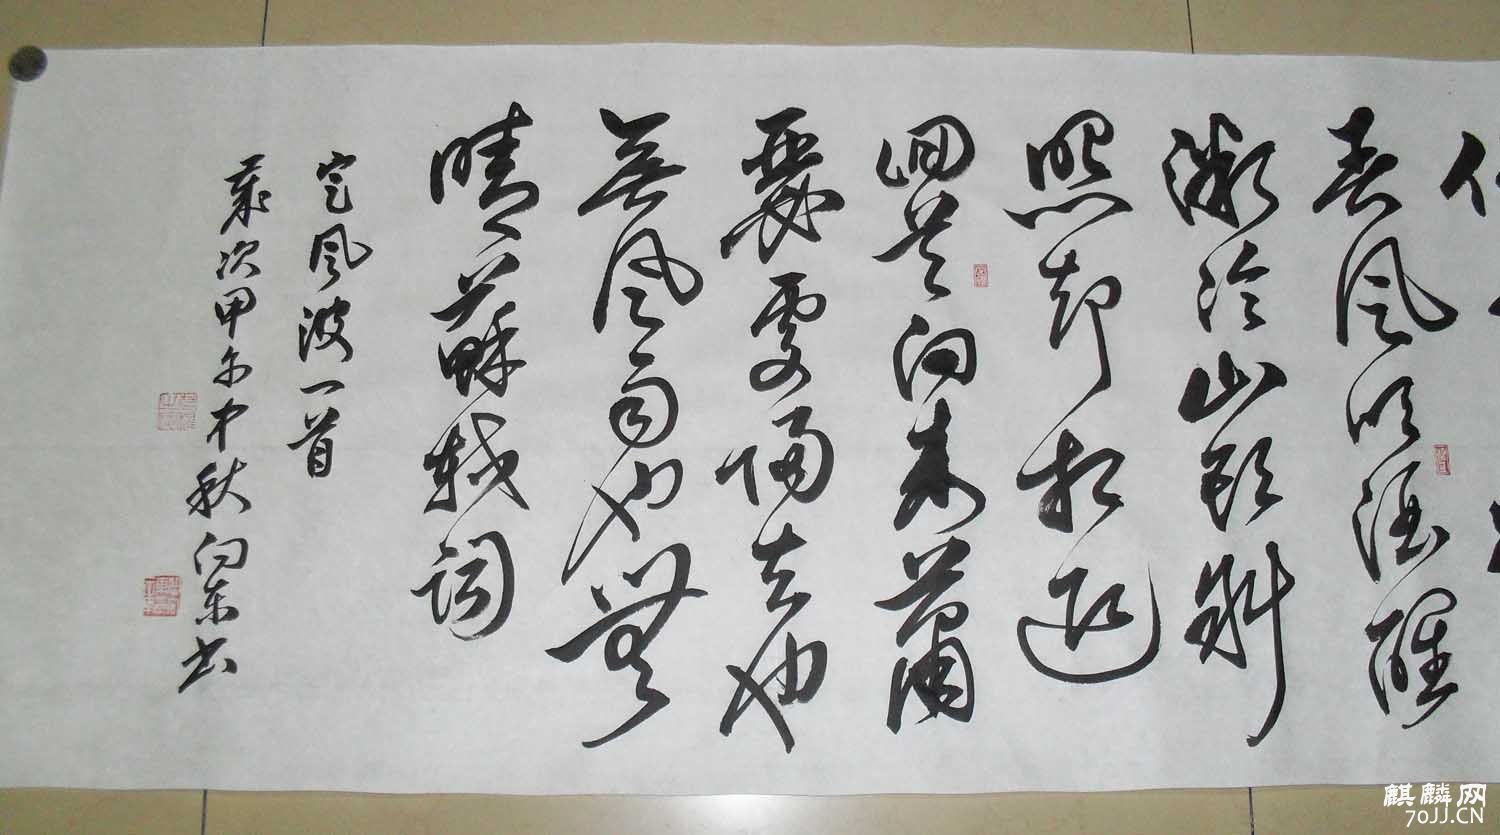 春风吹酒醒
微冷山頭斜
照却相迎
回首向来萧
瑟處归去也
無风雨也無
晴 蘇軾词
定风波一首
歲次甲午中秋向东书
麒麟网
70JJ.CN